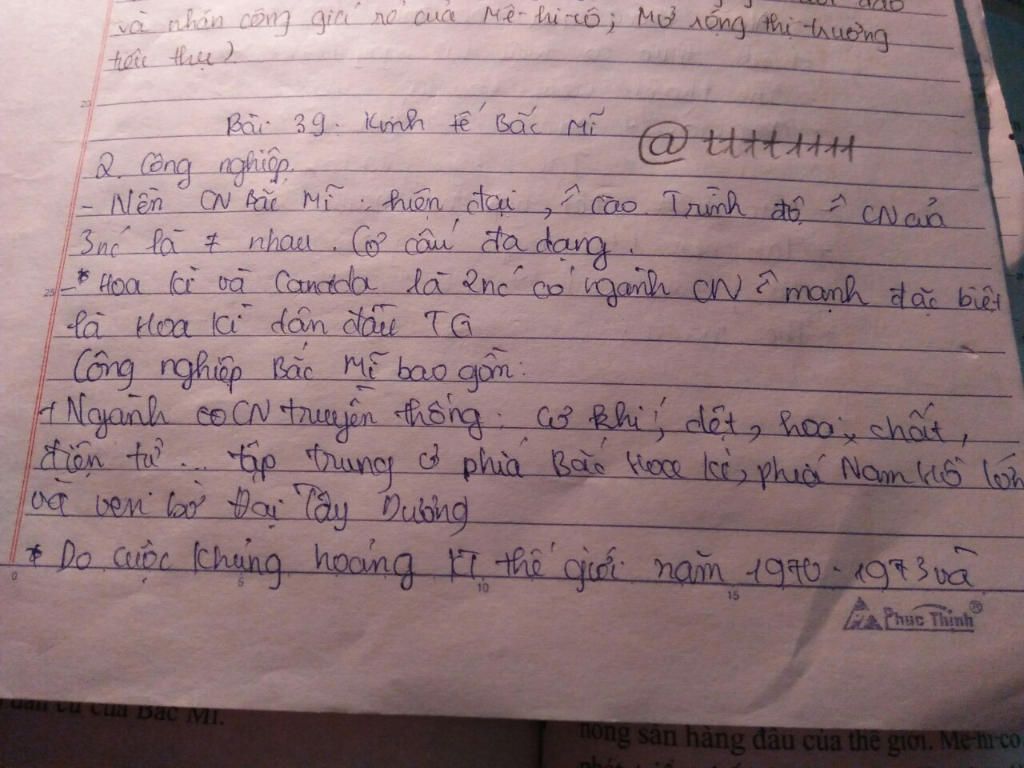 và nhân công giá rẻ của Mê-hi-cô; Mở rộng thị trường
tiêu thụ)
Bài 39. Kinh tế Bắc Mĩ
@ 11111111
2. Công nghiệp.
- Nền CN Bắc Mĩ hiện đại, cao Trình độ CN của
3nc´ là ≠ nhau. Cơ cấu đa dạng.
-* Hoa Kì và Canada là 2nc´ có ngành CN mạnh đặc biệt
là Hoa Kì dẫn đầu TG
Công nghiệp Bắc Mĩ bao gồm:
+ Ngành CN truyền thống: Cơ khí, dệt, hoá chất,
điện tử... tập trung ở phía Bắc Hoa Kì, phía Nam Hồ lớn
và ven bờ Đại Tây Dương
* Do cuộc khủng hoảng KT thế giới năm 1970 - 1973 và
0 5 10 15
23
25
Phuc Thinh®
dân cư của Bắc Mĩ.
nông sản hàng đầu của thế giới. Mê-hi-cô